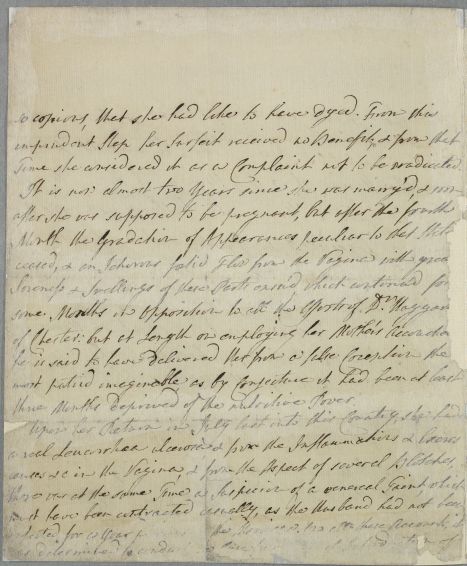 so copious, that she had like to have dyed. From this
imprudent Step her Surfeit received no Benefit, & from that
Time she considered it as a Complaint not to be eradicated.
It is now almost two Years since she was marry'd & soon
after she was supposed to be pregnant, but after the fourth
Month the Gradation of Appearances peculiar to that State
ceased, & an Ichorous fœtid Flux from the Vagina with great
Soreness & Swellings of these Parts ensued which continued for
some Months in Opposition to all the Efforts of Dr.
of Chester: but at Length on employing her Mother's Accoucheur
he is said to have delivered her from a false Conception the
most putrid imaginable as by conjecture it had been at least
three Months deprived of the nutritive Power.
Upon her Return in July last into this Country, she had
a real Leucorrhœa and from the Inflammations &
in the Vagina & from the Aspect of several Blotches,
there was at the same Time a Suspicion of a venereal Taint which
must have been contracted casually, as the Husband had not been
infected for
as determined to